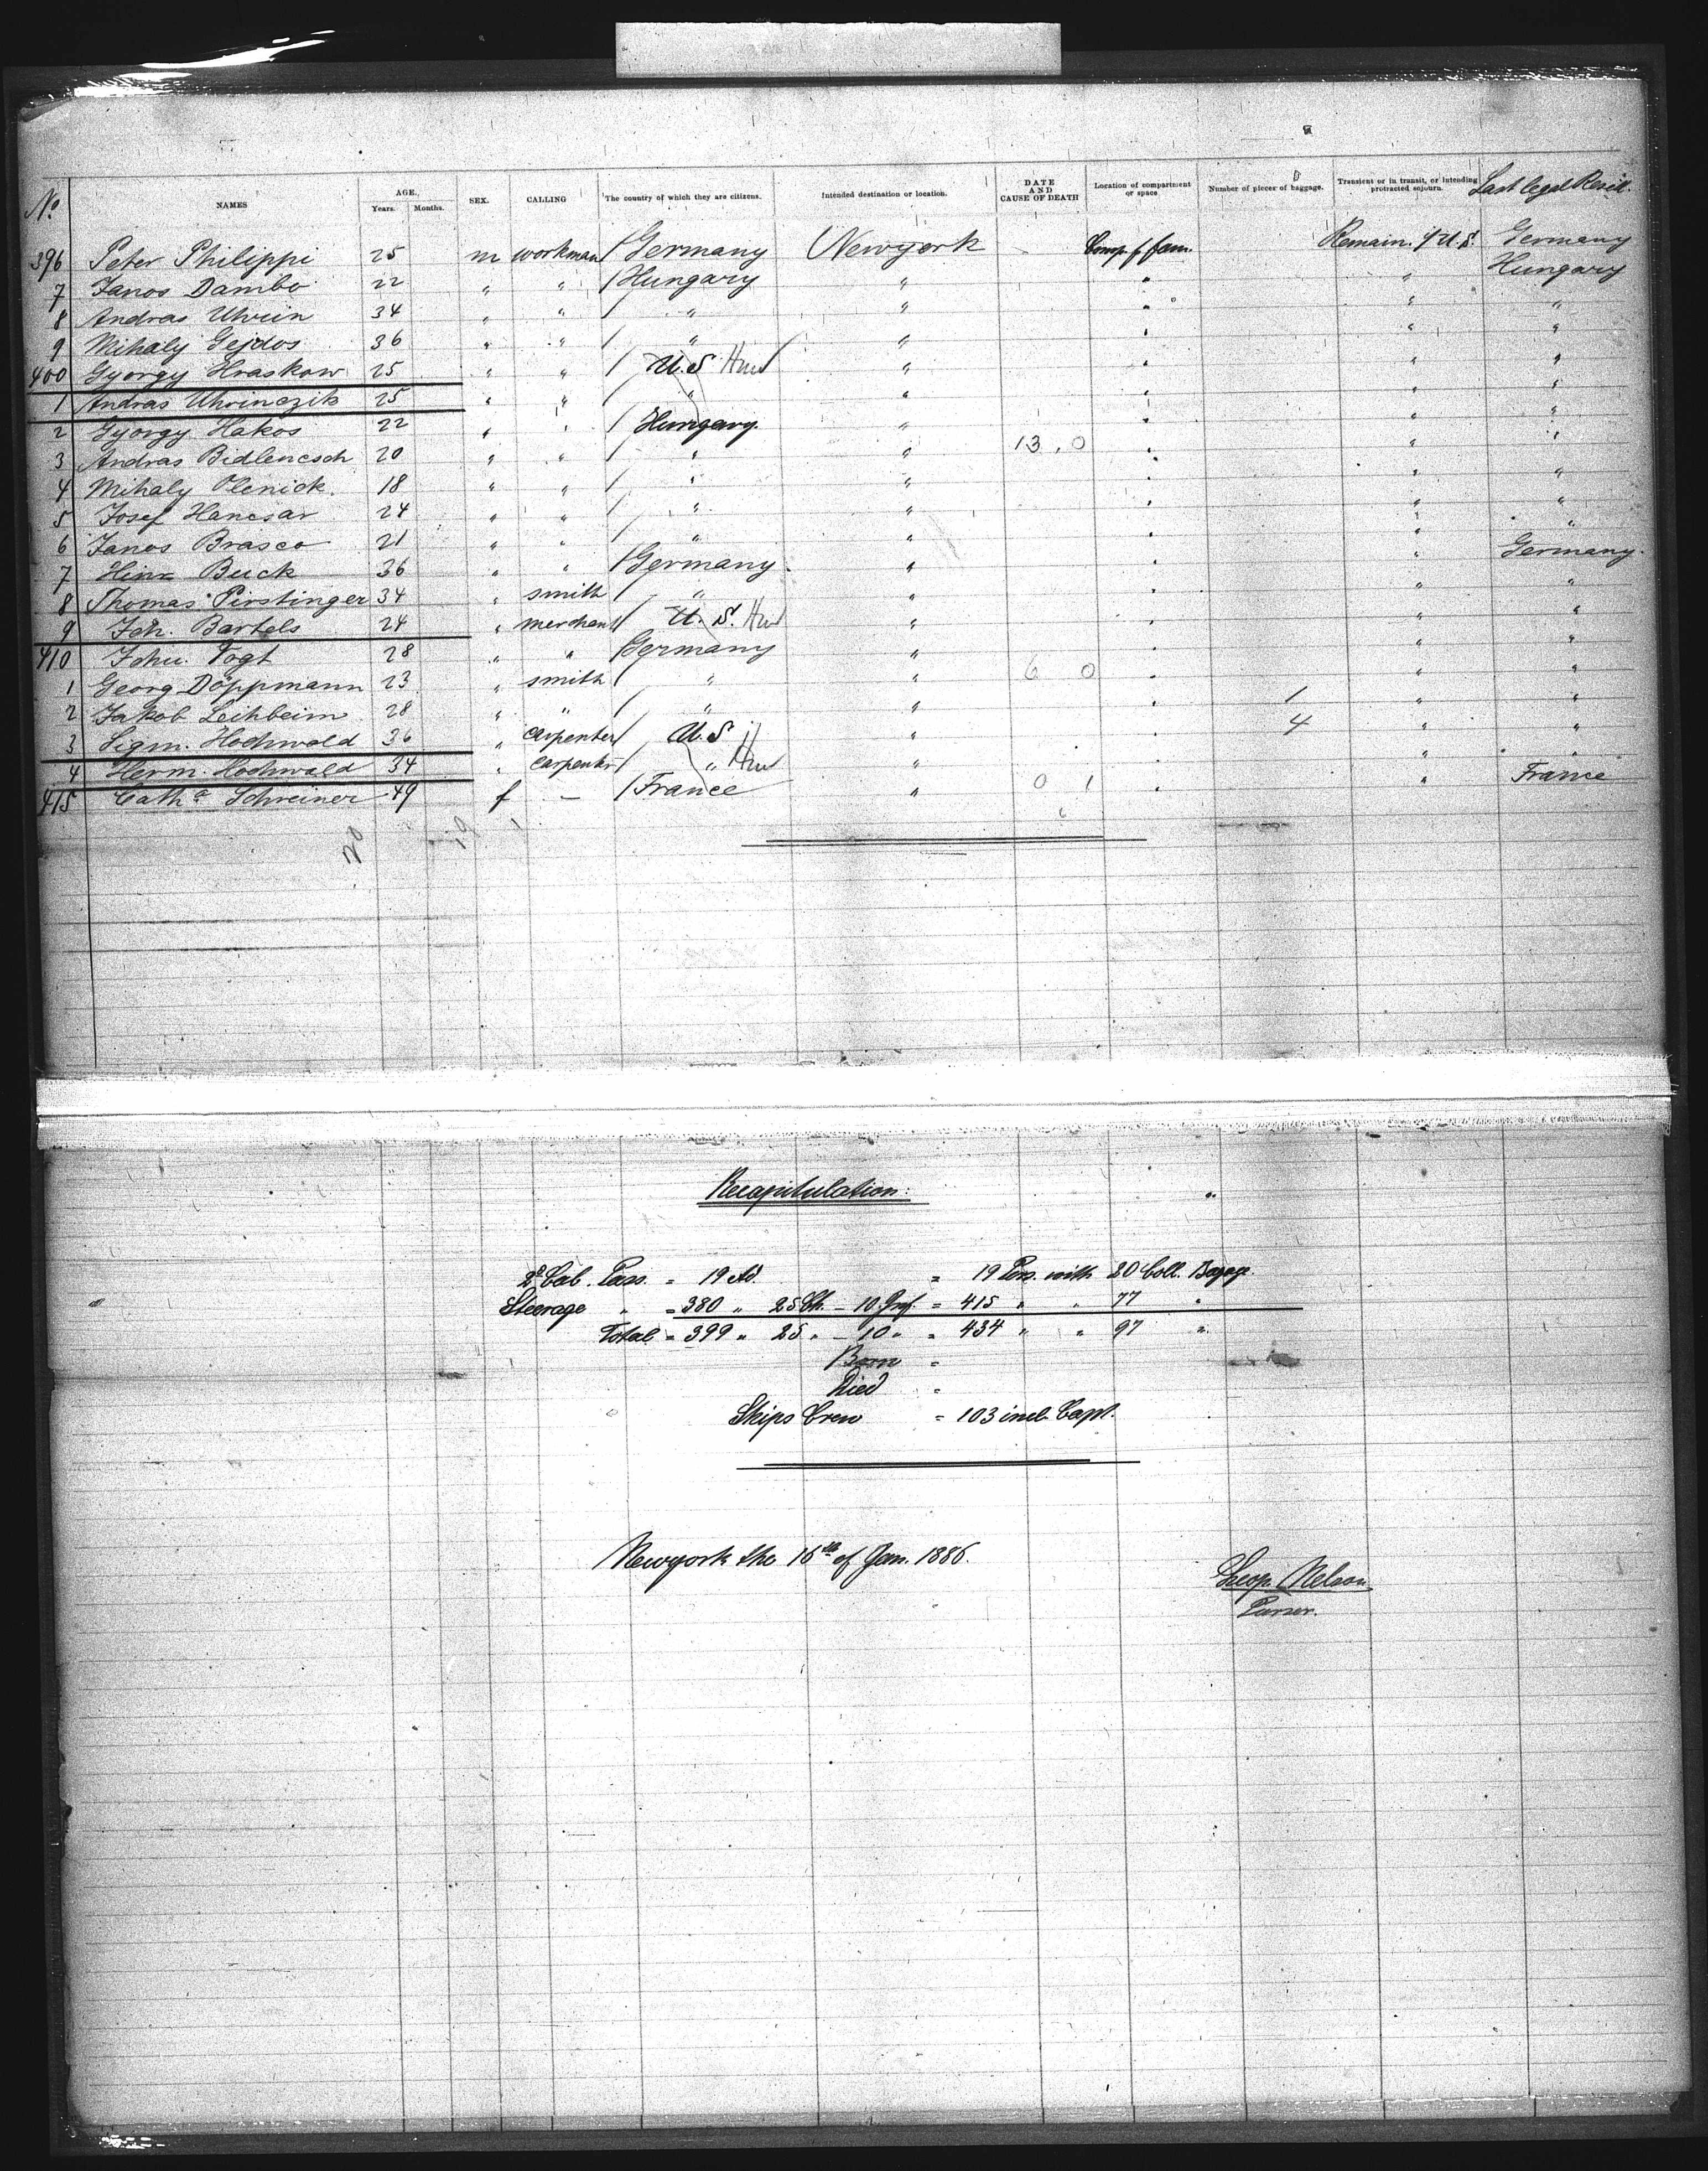 No NAMES AGE. Years. Months. SEX. CALLING The country of which they are citizens. Intended destination or location. DATE AND CAUSE OF DEATH Location of compartment or space Number of pieces of baggage. Transient or in transit, or intending protracted sojourn. Last legal Resid.
396 Peter Philippi 25 m workman Germany Newyork Comp. f fam. Remain. i/ U.S. Germany
7 Janos Dambo 22 " " Hungary " " " Hungary
8 Andras Uhrin 34 " " " " " " "
9 Mihaly Gejdos 36 " " " " " " "
400 Gyorgy Hraskow 25 " " U.S " " " "
1 Andras Uhrinczik 25 " " " " " " "
2 Gyorgy Hakos 22 " " Hungary " " " "
3 Andras Bidlencsch 20 " " " " 13.0 " " "
4 Mihaly Olenick. 18 " " " " " " "
5 Josef Hancsar 24 " " " " " " "
6 Janos Brasco 21 " " " " " " "
7 Hinr Buck 36 " " Germany. " " " Germany.
8 Thomas Pirstinger 34 " smith " " " " "
9 Joh. Bartels 24 " merchant U.S. " " " "
410 Johu. Vogt 28 " " Germany " " " "
1 Georg Döppmann 23 " smith " " 6 0 " " "
2 Jakob Leihbeim 28 " " " " " 1 " "
3 Sigm. Hochwald 36 " carpenter U.S " " 4 " "
4 Herm. Hochwald 34 " carpentr " " " " "
415 Catha Schreiner 49 f — France " 0 1 " " France
20 19 1
Recapitulation:
2d Cab. Pass. = 19 Ad. = 19 Pers. with 20 Coll. Bagage.
Steerage " = 380 " 25 Ch. – 10 Inf. = 415 " " 77 "
Total = 399 " 25 " – 10 " = 434 " " 97 "
Born =
Died =
Ships Crew = 103 incl. Capt.
Newyork the 16th of Jan. 1886.
Leop. Nelson
Purser.